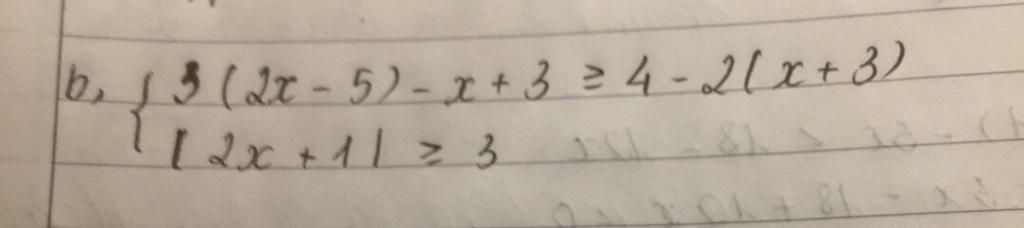 b, { 3 (2x - 5) - x + 3 ≥ 4 - 2(x + 3)
| 2x + 1 | ≥ 3